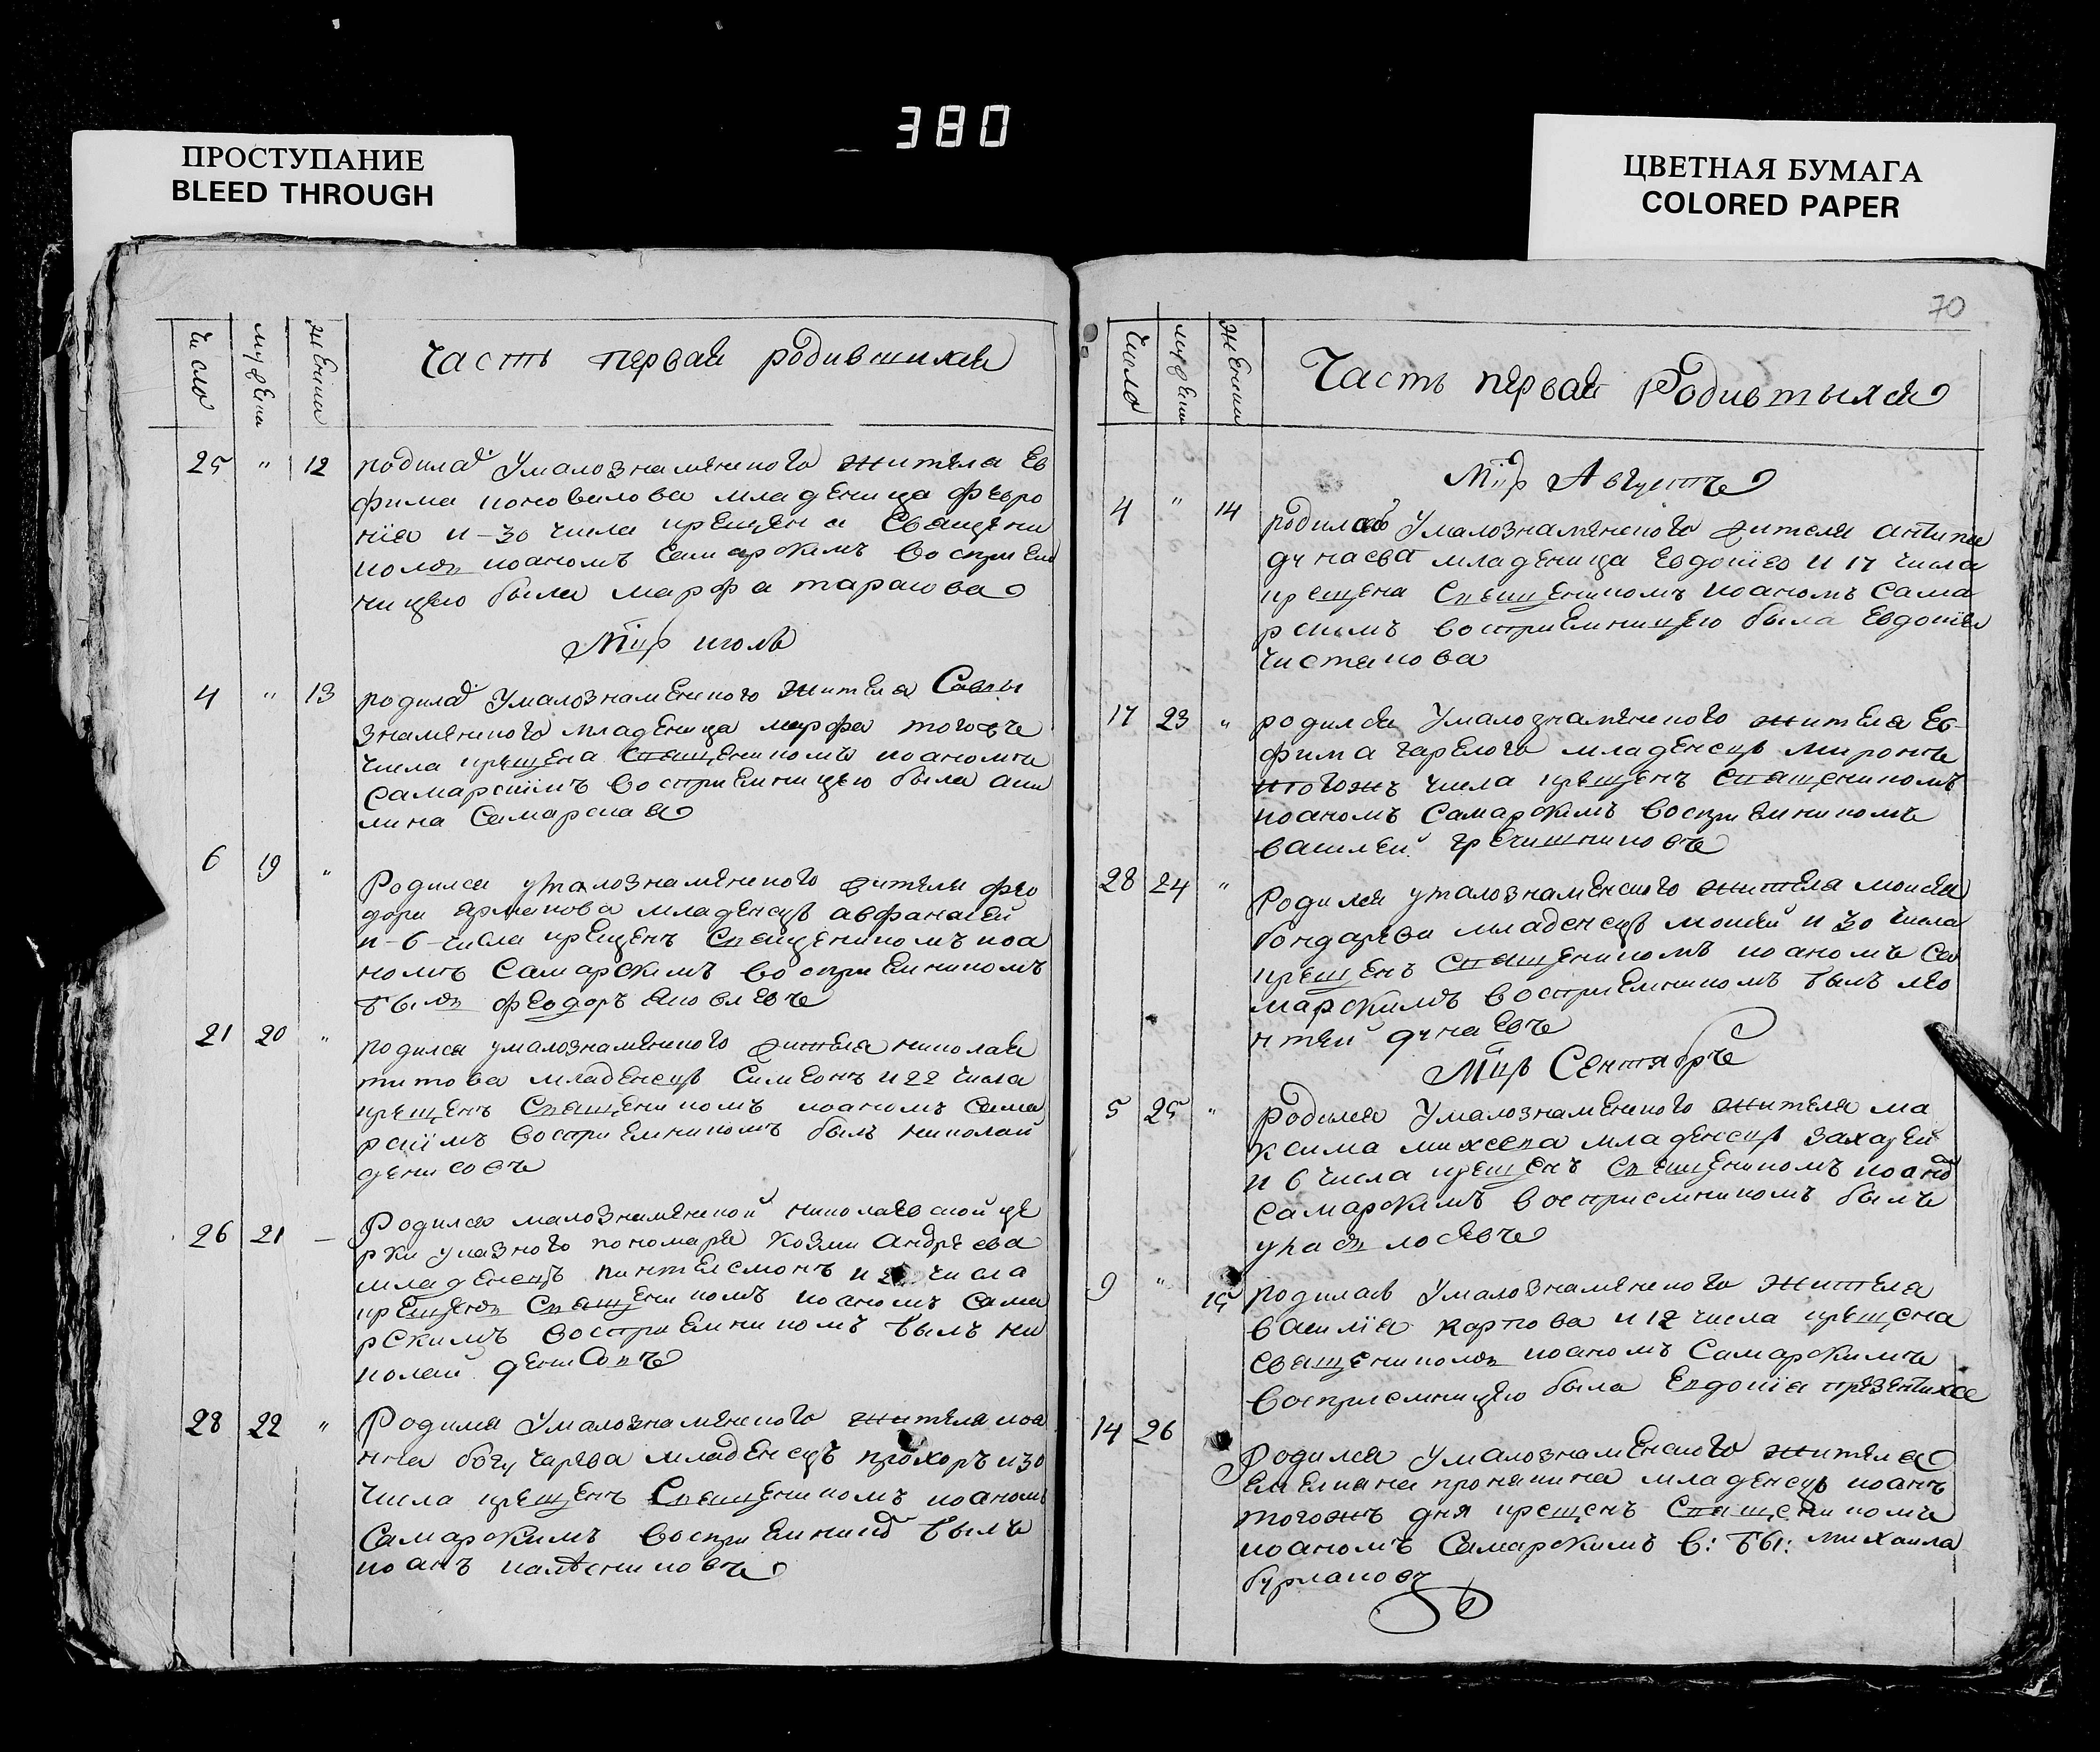 380
ПРОСТУПАНИЕ
BLEED THROUGH
ЦВЕТНАЯ БУМАГА
COLORED PAPER
число
мужеи
жении
часть первая родившихся
25 " 12 родилась Умалознаменского жителя Ев
фима коновалова младеница февро
ния и-30 числа крещена Священи
комъ иоаномъ Самарскимъ воспрыем
ницею была марфа тарасова
Мцѣ июль
4 " 13 родилась Умалознаменского жителя Саввы
знаменского младеница марфа тогожъ
числа крещена Священикомъ иоаномъ
Самарскимъ восприемницею была аки
лина Самарская
6 19 " Родился умалознаменского жителя фео
дора младенецъ авфанасей
и-6-числа крещенъ Священикомъ иоа
номъ Самарскимъ восприемникомъ
былъ феодоръ яковлевъ
21 20 " родился умалознаменского жителя николая
титова младенецъ Симеонъ и 22 числа
крещенъ Священикомъ иоаномъ Сама
рскимъ восприемникомъ былъ николай
денисовъ
26 21 — Родился малознаменской николаевской це
ркви указного пономаря козми андреева
младенецъ пантелемонъ и числа
крещенъ Священикомъ иоаномъ Сама
рскимъ восприемникомъ былъ ни
колай денисовъ
28 22 " Родился Умалознаменского жителя иоа
нна богучарева младенецъ прохоръ и 30
числа крещенъ Священикомъ иоаномъ
Самарскимъ восприемник былъ
иоанъ колесниковъ
70
число
мужеи
жении
Часть первая Родившыхся
Мцѣ Августъ
4 " 14 родилась Умалознаменского жителя антипа
дунаева младеница Евдокия и 17 числа
крещена Священикомъ иоаномъ Сама
рскимъ восприемницею была Евдокия
чистякова
17 23 " родился Умалознаменского жителя Ев
фима горелого младенецъ миронъ
тогожъ числа крещенъ Священикомъ
иоаномъ Самарскимъ восприемникомъ
василей гречишниковъ
28 24 " Родился умалознаменского жителя моисея
бондарева младенецъ моисей и 30 числа
крещенъ Священикомъ иоаномъ Са
марскимъ восприемникомъ былъ лео
нтей дунаевъ
Мцѣ Сентябръ
5 25 " родился Умалознаменского жителя ма
ксима михеева младенецъ захарей
и 6 числа крещенъ Священикомъ иоано
Самарскимъ восприемникомъ былъ
лосевъ
9 " 15 родилась Умалознаменского жителя
василия карпова и 12 числа крещена
Священикомъ иоаномъ Самарскимъ
восприемницею была Евдокия
14 26 Родился Умалознаменского жителя
Емелиана пронякина младенецъ иоанъ
тогожъ дня крещенъ Священикомъ
иоаномъ Самарскимъ в: бы: михаила
бурлаковъ